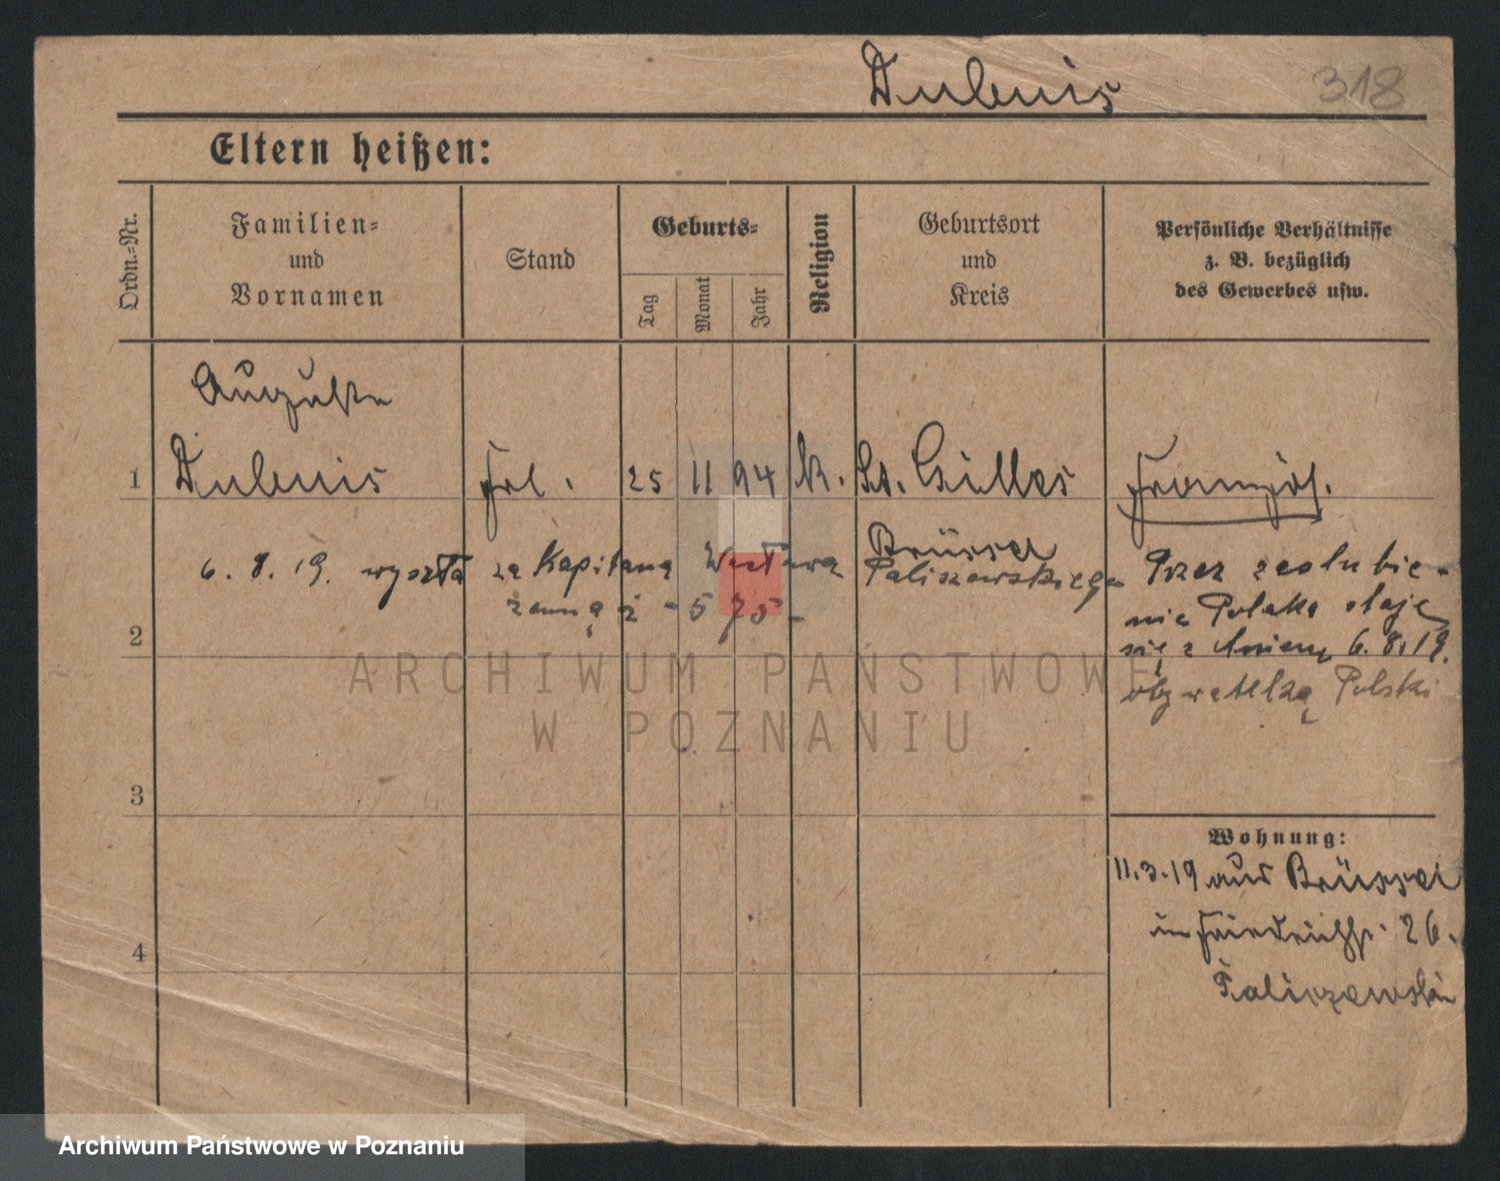 Dubuis
318
Eltern heißen:
Ordn.-Nr.
Familien-
und
Vornamen
Stand
Geburts-
Tag
Monat
Jahr
Religion
Geburtsort
und
Kreis
Persönliche Verhältnisse
z. B. bezüglich
des Gewerbes usw.
Auguste
1 Dubuis Frl. 25 11 94 K. St. Gilles Französ.
Brüssel
6. 8. 19. wyszła za Kapitana Paliszewskiego
żoną
Przez zaślubie-
nie Polaka staje
się z dniem 6.8.19.
obywatelką Polski
2
3
4
Wohnung:
11.3.19 aus Brüssel
in Friedrichstr. 26.
Paliszewski
ARCHIWUM PAŃSTWOWE
W POZNANIU
Archiwum Państwowe w Poznaniu